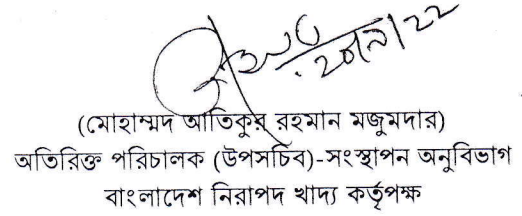 (মোহাম্মদ আতিকুর রহমান মজুমদার)
অতিরিক্ত পরিচালক (উপসচিব)-সংস্থাপন অনুবিভাগ
বাংলাদেশ নিরাপদ খাদ্য কর্তৃপক্ষ